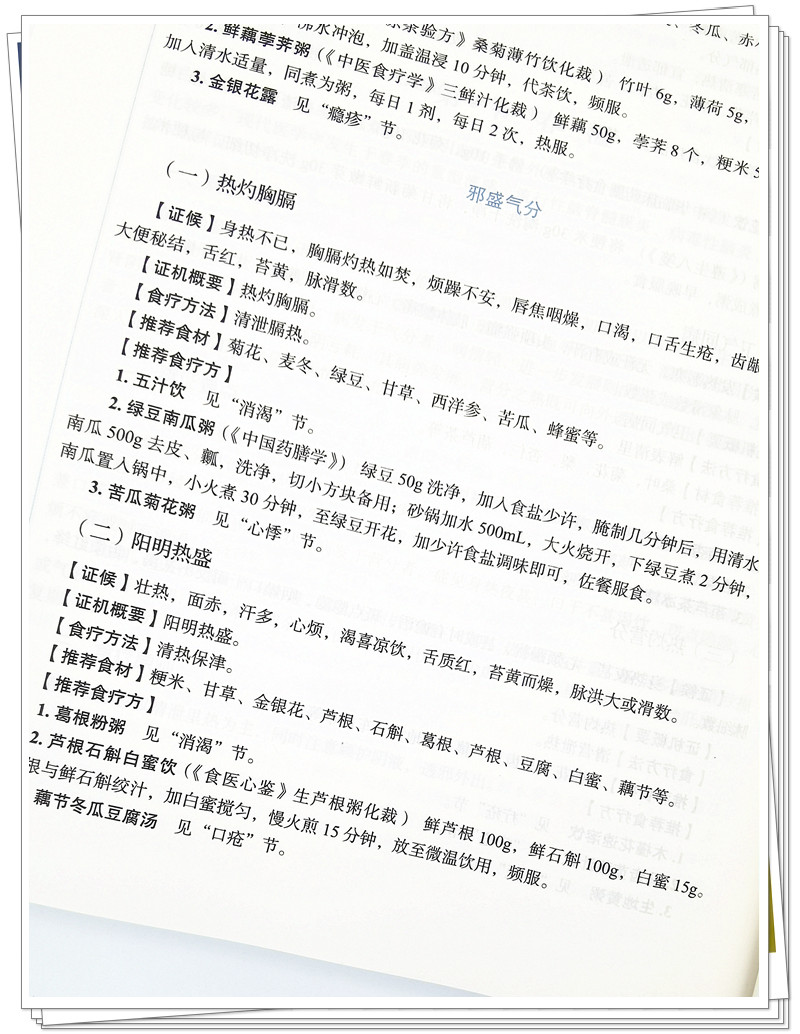 茶验方》桑菊薄竹饮化裁） 竹叶6g，薄荷5g，
沸水冲泡，加盖温浸10分钟，代茶饮，频服。
2. 鲜藕荸荠粥（《中医食疗学》三鲜汁化裁） 鲜藕50g，荸荠8个，粳米5
加入清水适量，同煮为粥，每日1剂，每日2次，热服。
3. 金银花露 见“瘾疹”节。
邪盛气分
（一）热灼胸膈
【证候】身热不已，胸膈灼热如焚，烦躁不安，唇焦咽燥，口渴，口舌生疮，齿龈
大便秘结，舌红，苔黄，脉滑数。
【证机概要】热灼胸膈。
【食疗方法】清泄膈热。
【推荐食材】菊花、麦冬、绿豆、甘草、西洋参、苦瓜、蜂蜜等。
【推荐食疗方】
1. 五汁饮 见“消渴”节。
2. 绿豆南瓜粥（《中国药膳学》） 绿豆50g洗净，加入食盐少许，腌制几分钟后，用清水
南瓜500g去皮、瓤，洗净，切小方块备用；砂锅加水500mL，大火烧开，下绿豆煮2分钟，
南瓜置入锅中，小火煮30分钟，至绿豆开花，加少许食盐调味即可，佐餐服食。
3. 苦瓜菊花粥 见“心悸”节。
（二）阳明热盛
【证候】壮热，面赤，汗多，心烦，渴喜凉饮，舌质红，苔黄而燥，脉洪大或滑数。
【证机概要】阳明热盛。
【食疗方法】清热保津。
【推荐食材】粳米、甘草、金银花、芦根、石斛、葛根、芦根、豆腐、白蜜、藕节等。
【推荐食疗方】
1. 葛根粉粥 见“消渴”节。
2. 芦根石斛白蜜饮（《食医心鉴》生芦根粥化裁） 鲜芦根100g，鲜石斛100g，白蜜15g。
根与鲜石斛绞汁，加白蜜搅匀，慢火煎15分钟，放至微温饮用，频服。
藕节冬瓜豆腐汤 见“口疮”节。